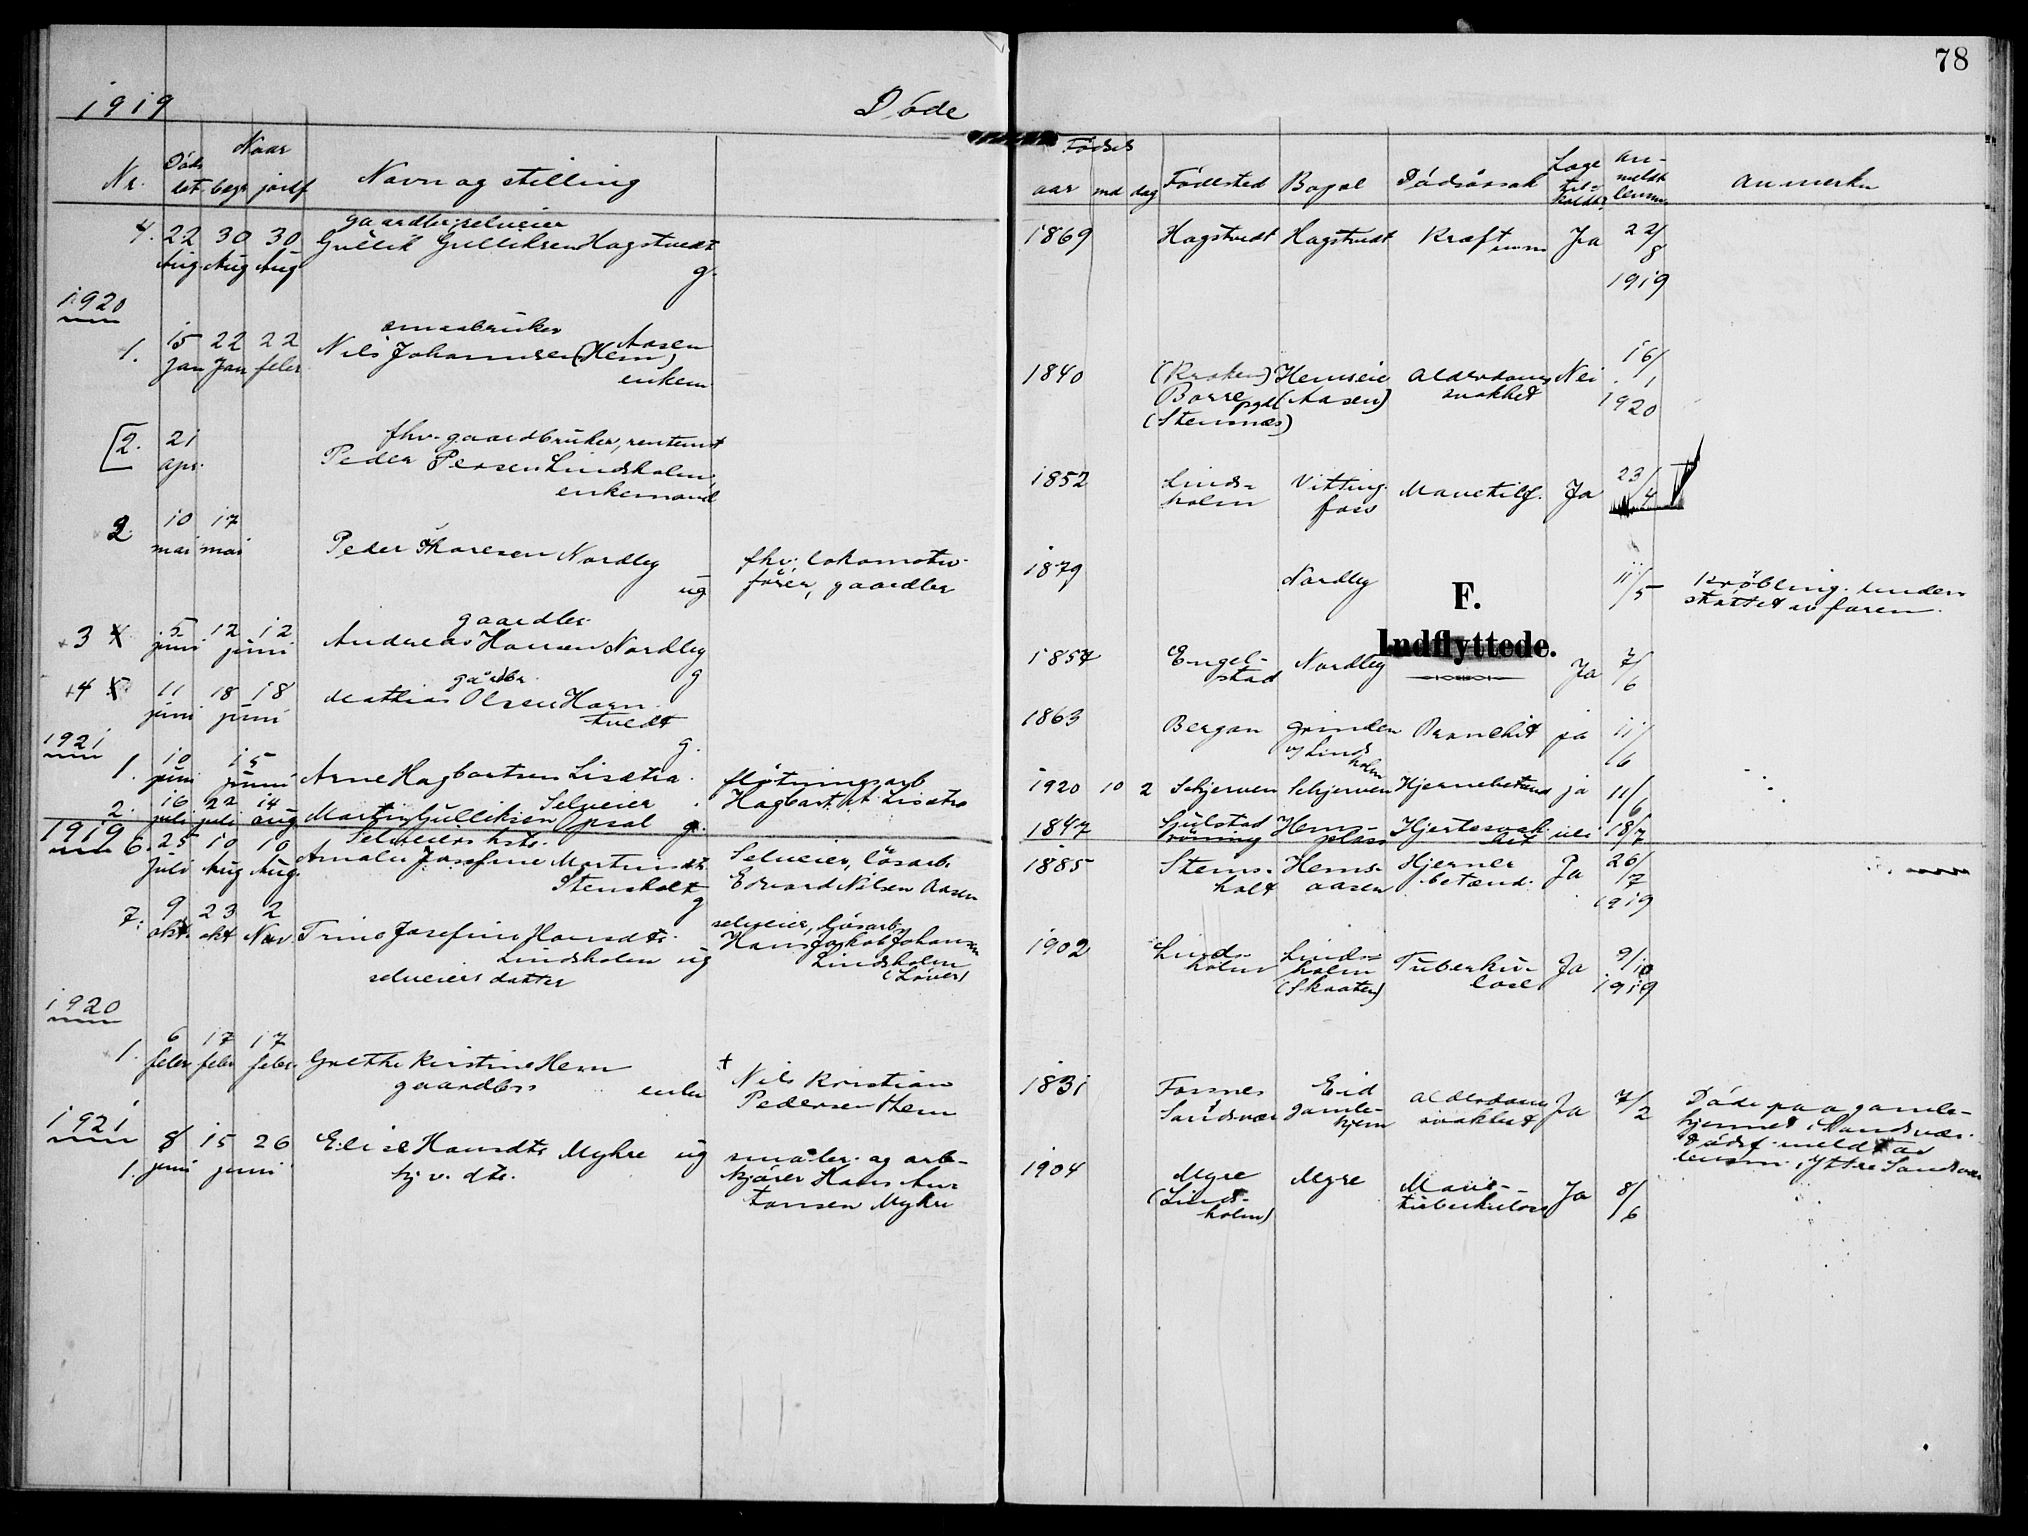 78
1919 Døde
Nr. Døds det Naar begr jordf Navn og stilling
Fødsels aar md dag Fødested Bopæl Dødsårsak Læge tilkaldt? anmeldt lensm. anmerkn
4. 22 Aug. 30 Aug 30 Aug gaardbr. selveier
Gullik Gulliksen Hagstvedt g.
1869 Hagstvedt Hagstvedt Kræft Ja 22/8 1919
1920
1. 15 Jan 22 Jan 22 febr smaabruker
Nils Johannesen (Hem) Aasen
enkem.
1840 (Kroken) Borre pgd (Stensnæs) Hemseie (Aasen) Alderdoms svakhet Nei 16/1 1920
[2. 21 apr. fhv. gaardbruker, rentenist
Peder Persen Lindsholm,
enkemand
1852 Linds-holm Vittingfoss Mavetilf. Ja 23/4
2. 10 mai 17 mai
Peder Thoresen Nordby ug fhv. lokomotiv-
fører, gaardbr
1879 Nordby 11/5 Krøbling. under-
støttet av faren.
F.
Indflyttede.
+3 4 5. juni 12 juni 12 gaardbr.
Andreas Hansen Nordby g
1857 Engel-stad Nordby Ja 7/6
+4 5 11 juni 18 juni 18 gaardbr.
Mathias Olsen Horn
tvedt g.
1863 Bergan Grinden v/ Linds holm Bronchit ja 11/6
1921
1. 10 juni 15 juni Arne Hagbartsen Lisætra. fløtningsarb
Hagbart A. Lisætra
1920 10 2 Schjerven Schjerven Hjernebetænd ja 11/6
2. 16 juli 22 juli 14 aug Selveier
Martin Gulliksen Opsal g.
1847 Hems-plass Hjertesvak het nei 18/7
1919
6. 25 Juli 10 Aug 10 Aug. Selveiers hstr.
Amalie Josefine Martinsdtr.
Stensholt g
Selveier, løsarb
Edvard Nilsen Aasen
1885 Stens-holt Hems-aasen Hjerne betænd. Ja 26/7 1919
7. 9 okt. 23 okt 2 Nov. Trine Josefine Hansdtr.
Lindsholm ug
selveiers datter
selveier, løsarb.
Hans Jakob Johansen
Lindsholm
1902 Linds-holm Linds-holm (Skaaten) Tuberku-lose Ja 9/10 1919
1920
1. 6 febr 17 febr 17 febr. Grethe Kirstine Hem
gaardbrs enke
+
Nils Kristian
Pedersen Hem
1831 Fossnes Sandsvær Eid gamle-hjem Alderdoms svakhet Ja 7/2 Døde paa gamle-
hjemmet i Sandsvær.
Dødsf. meldt av
lensm. i Ytre Sandsvær
1921
1. 8 juni 15 juni 26 Elise Hansdtr. Myhre ug
hj v. dtr.
smaabr. og arb-
kjører Hans An-
tonsen Myhre
1904 Myre (Linds-holm) Myre Mave-tuberkulose Ja 8/6